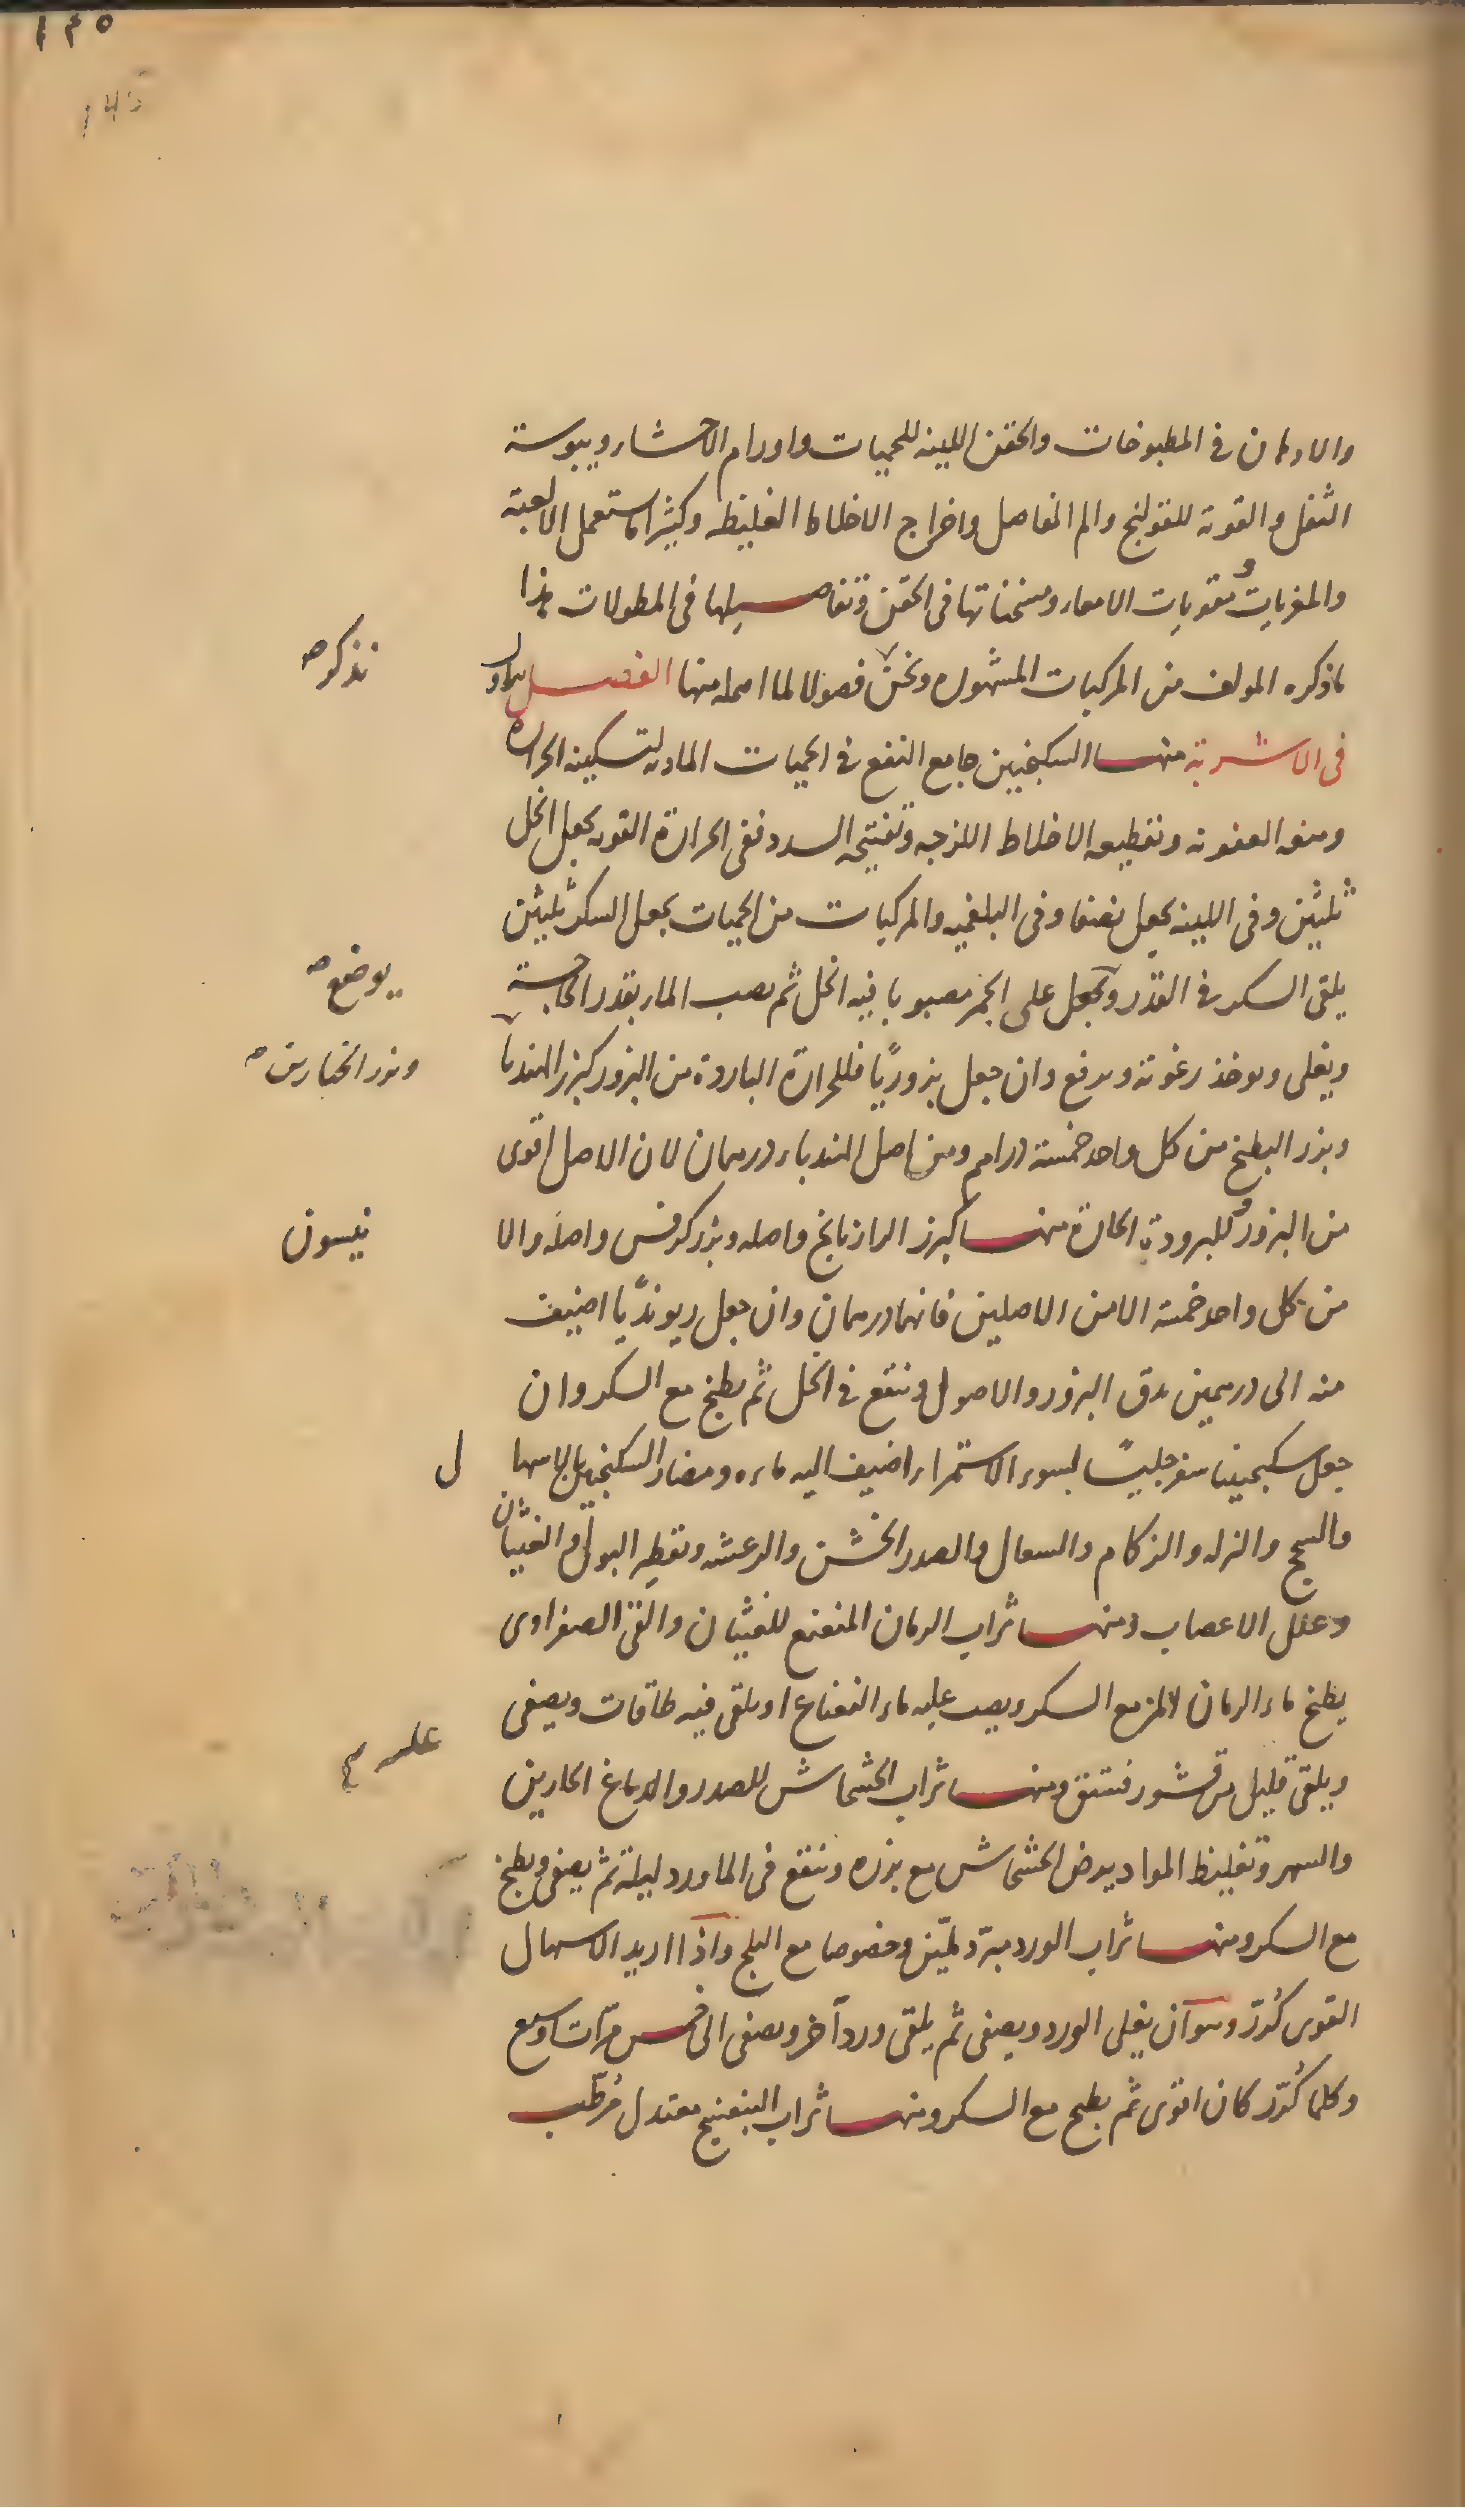 ١٤٥
145
والادهان فى المطبوخات والحقن اللينه للحميات واورام الاحشاء ويبوسة
الثفل والقوية للقولنج والم المفاصل واخراج الاخلاط الغليظه وكثيرا ما يستعمل الالعبة
والمغريات ومقويات الامعاء ومسخناتها فى الحقن وتفاصيلها فى المطولات هذا
ما ذكره المولف من المركبات المشهوره ونحن فصولا لما اهمله منها الفصل الاول
نذكر صح
فى الاشربة منها السكنجبين جامع النفع فى الحميات المادية لتسكينه الحرارة
ومنعه العفونه وتقطيعه الاخلاط اللزجه وتفتيحه السدد ففى الحرارة القويه يجعل الخل
ثلثين وفى اللينه يجعل نصفا وفى البلغميه والمركبات من الحميات يجعل السكر ثلثين
يلقى السكر فى القدر ويجعل على الجمر مصبوبا فيه الخل ثم يصب الماء بقدر الحاجة
يوضع صح
ويغلى ويوخذ رغوته ويرفع وان جعل بزوريًا فللحرارة الباردة من البزور كبزر الهندبا
وبزر الخيارين صح
وبزر البطيخ من كل واحد خمسة دراهم ومن اصل الهندباء درهمان لان الاصل اقوى
من البزور وللبرودة الحارة منها كبزر الرازيانج واصله وبزر كرفس واصله والا
نيسون
من كل واحد خمسة الا من الاصلين فانهما درهمان وان جعل ريونديًا اضيف
منه الى درهمين يدق البزور والاصول وينقع فى الخل ثم يطبخ مع السكر وان
جعل سكنجبينا سفرجليًا لسوء الاستمراء اضيف اليه ماءه ومضار السكنجبين بالاسها
ل
والسحج والنزله والزكام والسعال والصدر الخشن والرعشه وتقطير البول والغثيان
وعلل الاعصاب ومنها شراب الرمان المنعنع للغثيان والقئ الصفراوى
يطبخ ماء الرمان المز مع السكر ويصب عليه ماء النعناع او يلقى فيه طاقات ويصفى
ويلقى قليل من قشور فستق ومنها شراب الخشخاش للصدر والدماغ الحارين
عليه صح
والسهر وتغليظ المواد يرض الخشخاش مع بزره وينقع فى الماورد ليلة ثم يصفى ويطبخ
مع السكر ومنها شراب الورد مبرّد مليّن وخصوصا مع الثلج واذا اريد الاسهال
القوى كُرّر وهو ان يغلى الورد ويصفى ثم يلقى ورد آخر ويصفى الى خمس مرّات وسبع
وكلما كُرّر كان اقوى ثم يطبخ مع السكر ومنها شراب البنفسج معتدل مُرطّب